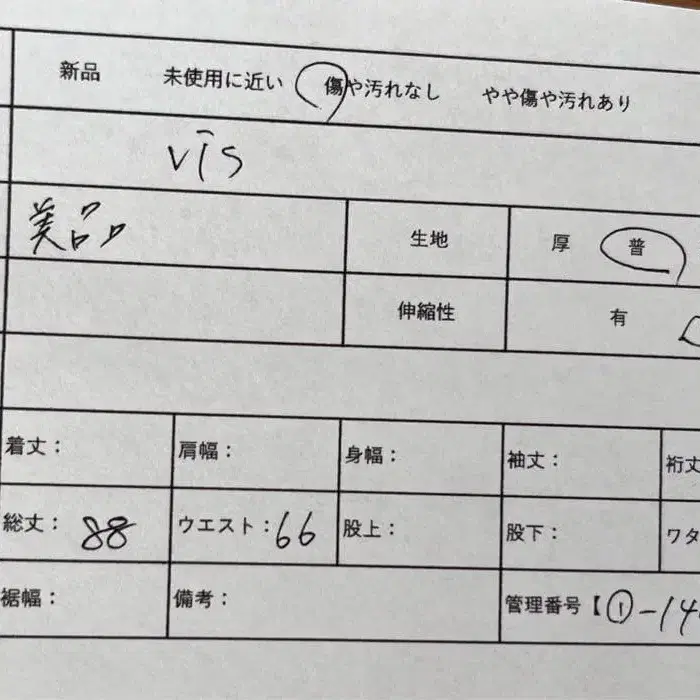 新品 未使用に近い 傷や汚れなし やや傷や汚れあり
vis
美品 生地 厚 普
伸縮性 有
着丈： 肩幅： 身幅： 袖丈： 裄丈
総丈：88 ウエスト：66 股上： 股下： ワタ
裾幅： 備考： 管理番号【①-14